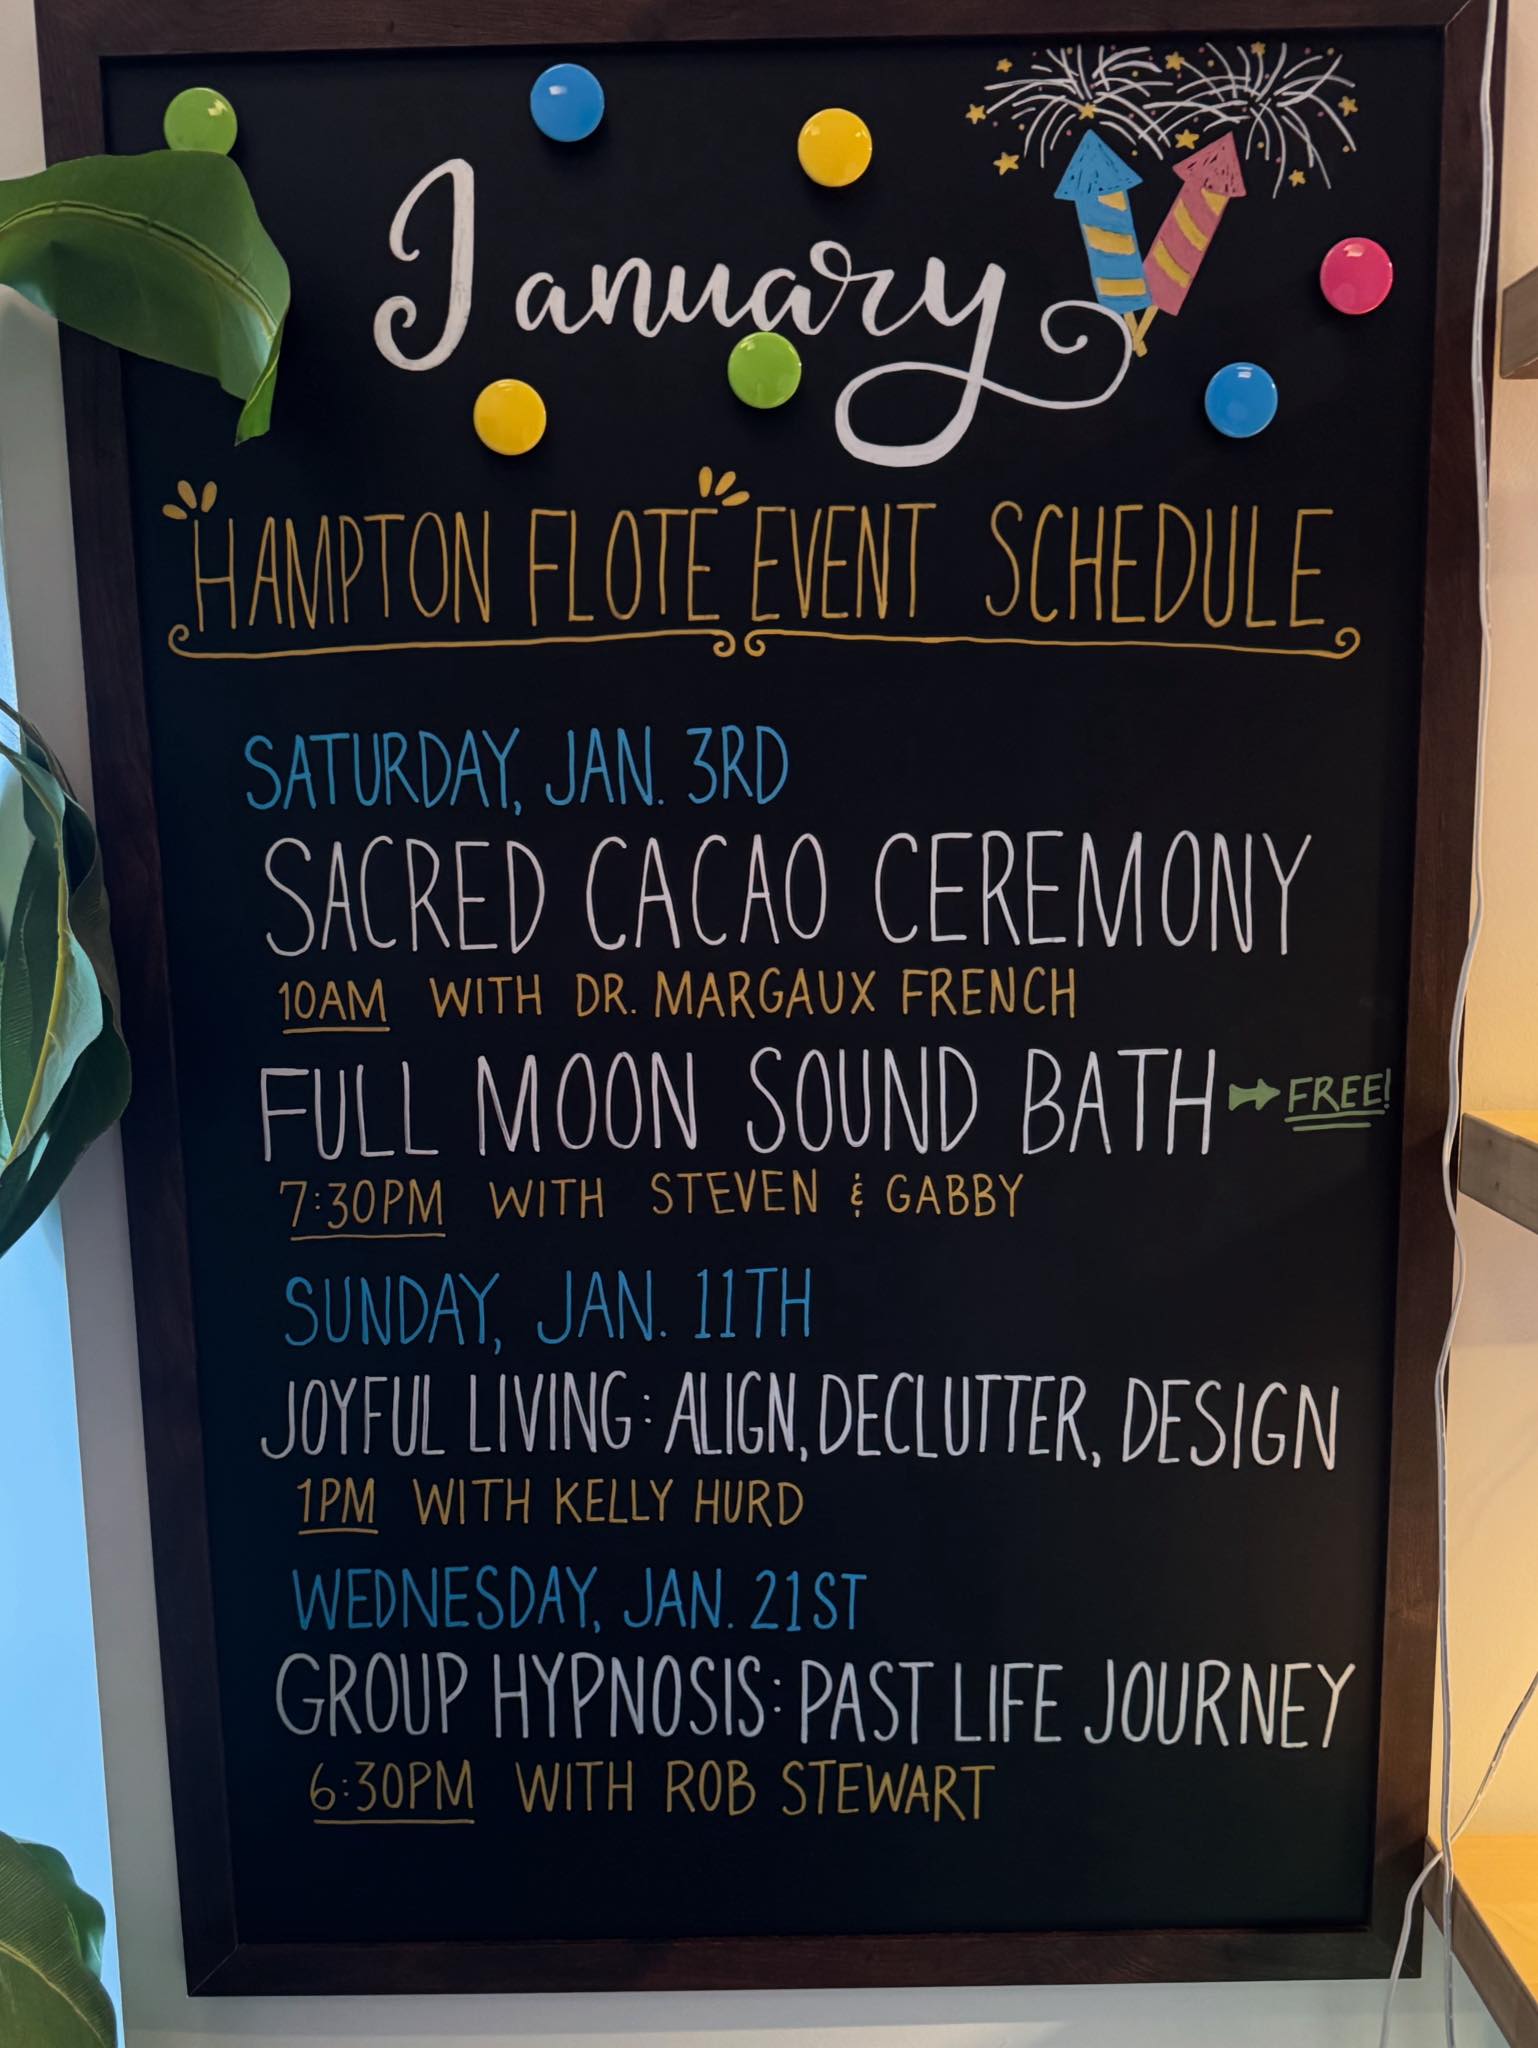 January
HAMPTON FLOTE EVENT SCHEDULE
SATURDAY, JAN. 3RD
SACRED CACAO CEREMONY
10AM WITH DR. MARGAUX FRENCH
FULL MOON SOUND BATH → FREE!
7:30PM WITH STEVEN & GABBY
SUNDAY, JAN. 11TH
JOYFUL LIVING: ALIGN, DECLUTTER, DESIGN
1PM WITH KELLY HURD
WEDNESDAY, JAN. 21ST
GROUP HYPNOSIS: PAST LIFE JOURNEY
6:30PM WITH ROB STEWART